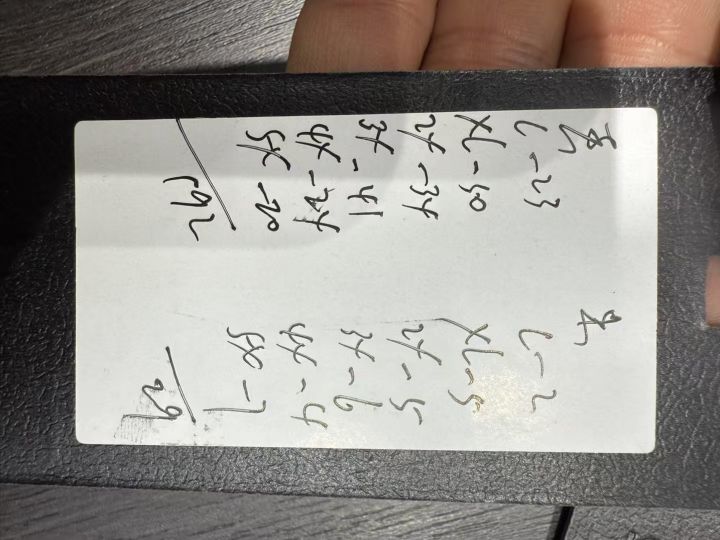 L-23
XL-50
2X-34
3X-41
4X-24
5X-20
192
L-2
XL-5
2X-5
3X-6
4X-4
5X-7
29